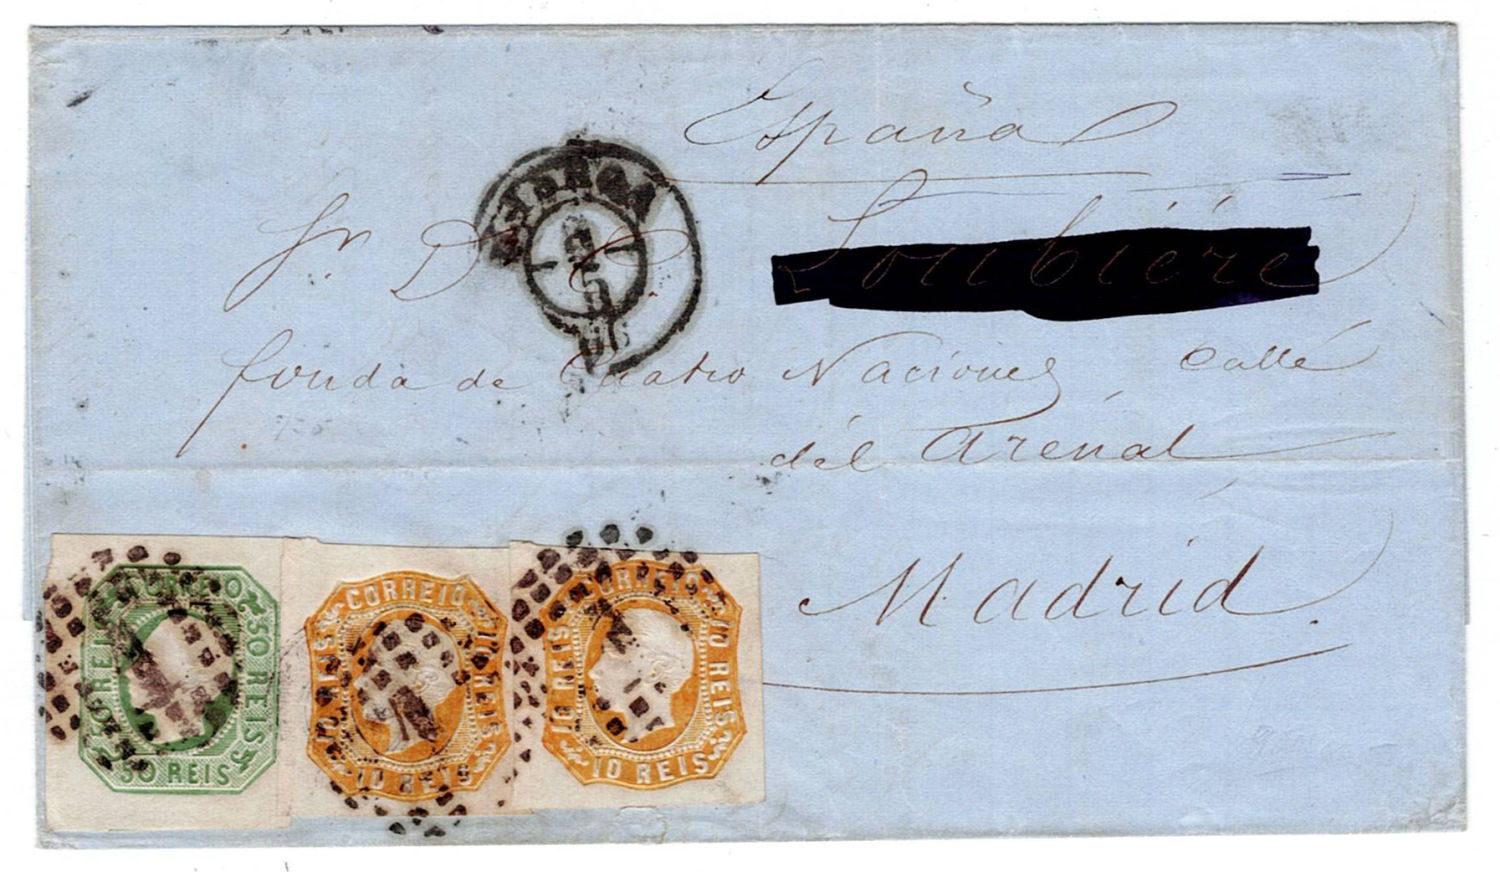 España
Sr. D. C. Loubiéré
fonda de Cuatro Naciones Callé
dél Arénal
Madrid.
CORREIO
50 REIS
50 REIS
50 REIS
CORREIO
10 REIS
10 REIS
10 REIS
CORREIO
10 REIS
10 REIS
10 REIS